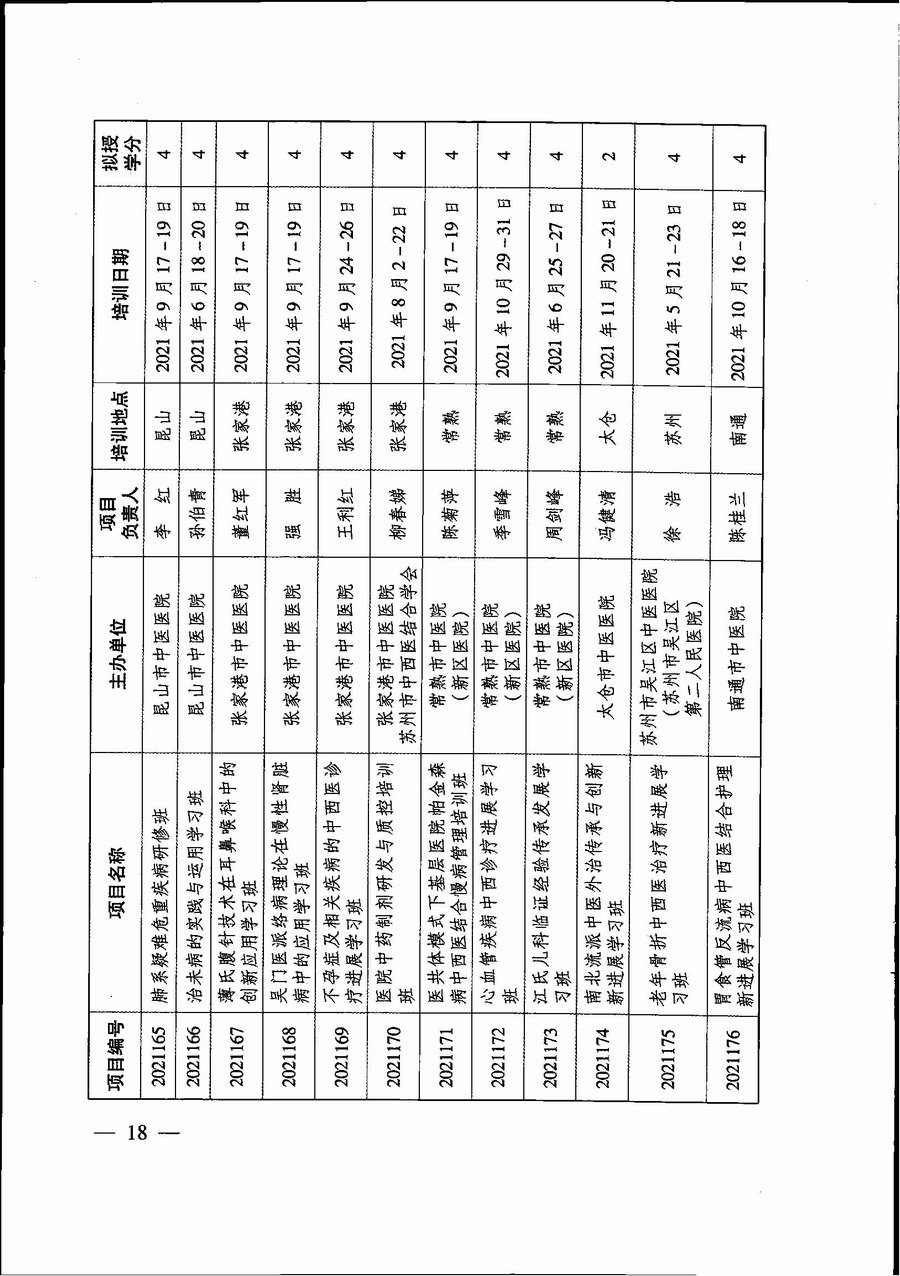 项目编号 项目名称 主办单位 项目负责人 培训地点 培训日期 拟授学分
2021165 肺系疑难危重疾病研修班 昆山市中医医院 李 红 昆山 2021 年 9 月 17-19 日 4
2021166 治未病的实践与运用学习班 昆山市中医医院 孙伯青 昆山 2021 年 6 月 18-20 日 4
2021167 薄氏腹针技术在耳鼻喉科中的创新应用学习班 张家港市中医医院 董红军 张家港 2021 年 9 月 17-19 日 4
2021168 吴门医派络病理论在慢性肾脏病中的应用学习班 张家港市中医医院 强 胜 张家港 2021 年 9 月 17-19 日 4
2021169 不孕症及相关疾病的中西医诊疗进展学习班 张家港市中医医院 王利红 张家港 2021 年 9 月 24-26 日 4
2021170 医院中药制剂研发与质控培训班 张家港市中医医院 苏州市中西医结合学会 柳春娣 张家港 2021 年 8 月 2-22 日 4
2021171 医共体模式下基层医院帕金森病中西医结合慢病管理培训班 常熟市中医院（新区医院） 陈菊萍 常熟 2021 年 9 月 17-19 日 4
2021172 心血管疾病中西诊疗进展学习班 常熟市中医院（新区医院） 季雪峰 常熟 2021 年 10 月 29-31 日 4
2021173 江氏儿科临证经验传承发展学习班 常熟市中医院（新区医院） 周剑峰 常熟 2021 年 6 月 25-27 日 4
2021174 南北流派中医外治传承与创新新进展学习班 太仓市中医医院 冯健清 太仓 2021 年 11 月 20-21 日 2
2021175 老年骨折中西医治疗新进展学习班 苏州市吴江区中医医院（苏州市吴江区第二人民医院） 徐 浩 苏州 2021 年 5 月 21-23 日 4
2021176 胃食管反流病中西医结合护理新进展学习班 南通市中医院 陈桂兰 南通 2021 年 10 月 16-18 日 4
— 18 —